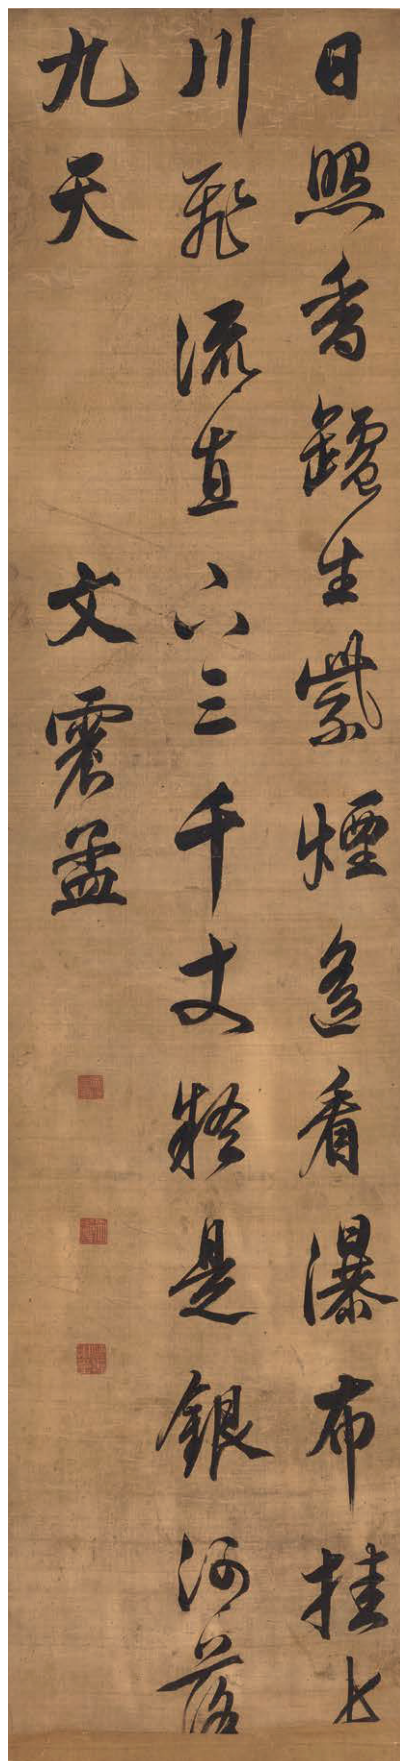 日照香鑪生紫煙遙看瀑布挂長
川飛流直下三千丈疑是銀河落
九天 文震孟